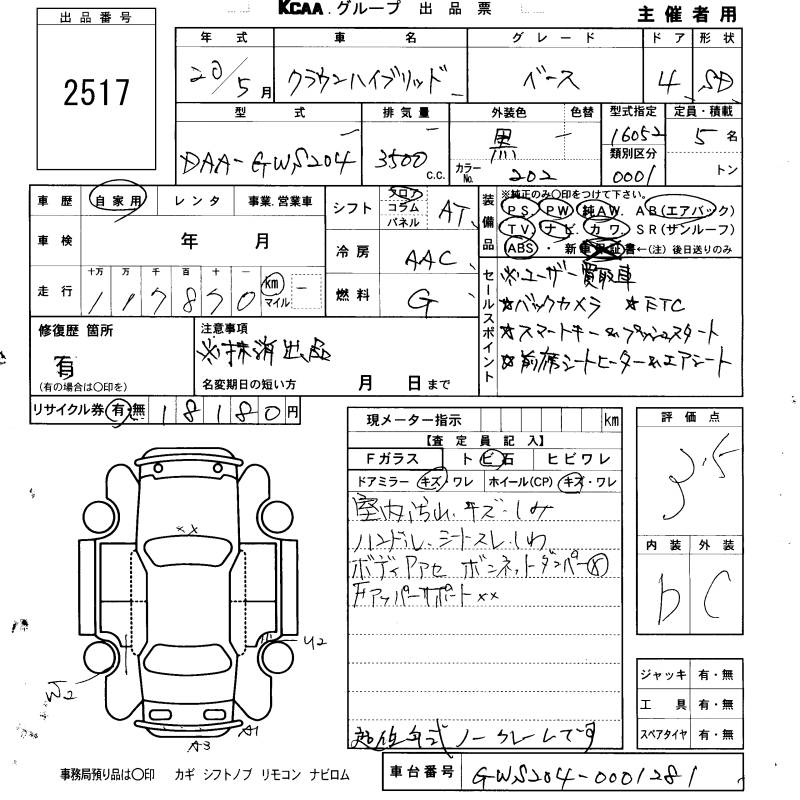 KCAA.グループ 出品票
主催者用
出品番号
2517
年式 車名 グレード ドア 形状
20/5月 クラウンハイブリッド ベース 4 SD
型式 排気量 外装色 色替 型式指定 定員・積載
DAA-GWS204 3500 c.c. 黒 一 16052 5名
カラーNo. 202 類別区分 0001 トン
車歴 自家用 レンタ 事業.営業車
車検 年 月
十万 万 千 百 十 一
走行 117870 km マイル
シフト フロア コラム パネル AT
冷房 AAC
燃料 G
装備品 ※純正のみ〇印をつけて下さい。
PS. PW. 純AW. AB(エアバック)
TV. ナビ. カワ. SR(サンルーフ)
ABS ・ 新車保証書←(注)後日送りのみ
セールスポイント
※ユーザー買取車
☆バックカメラ ☆ETC
☆スマートキー&プッシュスタート
☆前席シートヒーター&エアシート
修復歴 箇所
有
(有の場合は〇印を)
注意事項
※抹消出品
名変期日の短い方 月 日まで
リサイクル券 有・無 18180円
現メーター指示 km
【査定員記入】
Fガラス トビ石 ヒビワレ
ドアミラー キズ・ワレ ホイール(CP) キズ・ワレ
室内汚れ.キズ.しみ
ハンドル.シートスレ.しわ
ボディアセ ボンネットダンパー☓
Fアッパーサポート××
超低年式 ノークレームです
評価点
3.5
内装 外装
D C
ジャッキ 有・無
工具 有・無
スペアタイヤ 有・無
××
U2
W2
A3
A1
事務局預り品は〇印 カギ シフトノブ リモコン ナビロム
車台番号 GWS204-0001281